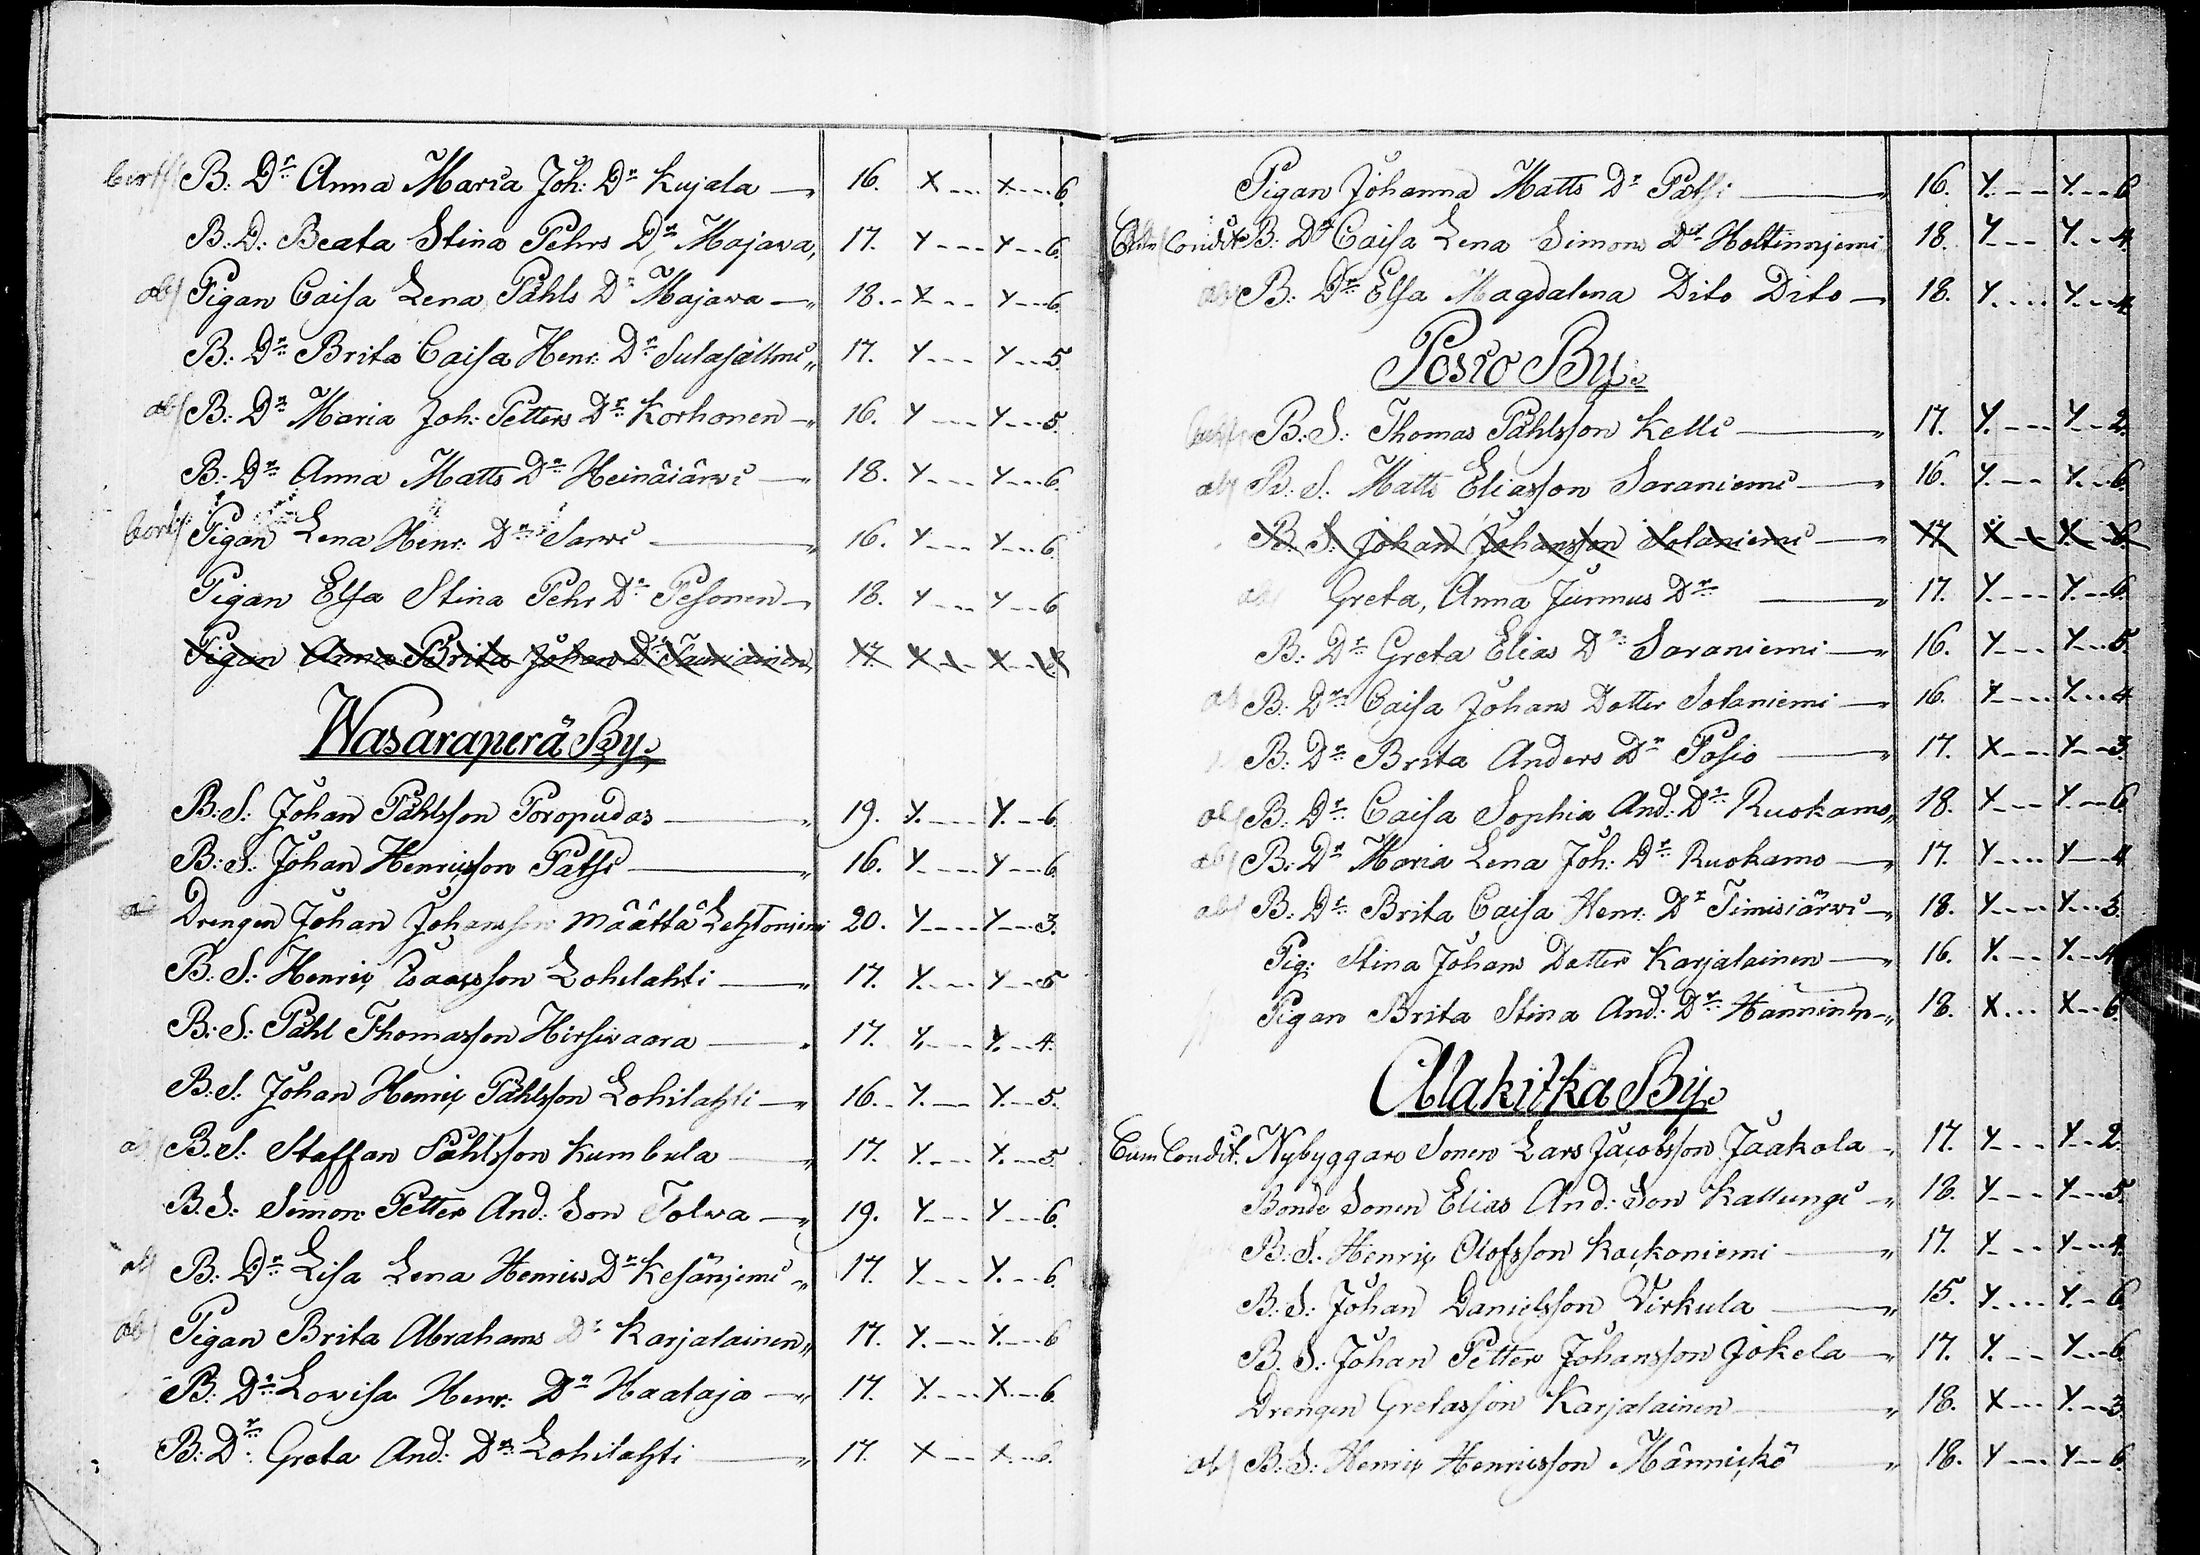 bort/ B: Dr Anna Maria Joh: Dr Kujala — 16. X --- X --- 6.
B: D: Beata Stina Pehrs Dr Majava, 17. Y --- Y -- 6.
abs/ Pigan Caisa Lena Påhls Dr Majava — 18. - X -- Y -- 6.
B: Dr Brita Caisa Henr: Dr Sulasällmi 17. Y --- Y -- 5.
abs/ B: Dr Maria Joh: Petters Dr Korhonen — 16. Y --- Y --- 5.
B: Dr Anna Matts Dr Heinäiärvi — 18. Y --- Y --- 6.
bort/ Pigan Lena Henr: Dr Sarvi — 16. Y --- Y --- 6.
Pigan Elsa Stina Pehr Dr Pesonen — 18. Y --- Y -- 6
Pigan Anna Brita Johan Dr Tauriainen, 17 X -- X --
Wasaraperä By
B: S: Johan Påhlsson Poropudas — 19. Y. --- Y. -- 6.
B: S: Johan Henricsson Pätsi — 16. Y --- Y -- 6.
Drengen Johan Johansson Määttä Lehtoniemi 20. Y --- Y --- 3.
B: S: Henric Isaacsson Lohilahti — 17. Y. --- Y -- 5
B: S: Påhl Thomasson Hirsivaara — 17. Y. --- Y. -- 4.
B: S: Johan Henric Påhlsson Lohilahti — 16. Y. -- Y. -- 5.
ab/ B: S: Staffan Påhlsson Kumbula — 17. Y. --- Y. --- 5.
B: S: Simon Petter And: Son Tolva — 19. Y --- Y --- 6.
abs/ B: Dr Lisa Lena Henrics Dr Kesäniemi 17. Y --- Y. -- 6.
ab/ Pigan Brita Abrahams Dr Karjalainen 17. Y. --- Y. --- 6
B: Dr Lovisa Henr: Dr Haataja — 17. Y --- X --- 6.
B: Dr Greta And: Dr Lohilahti — 17. X --- X --- 6.
Pigan Johanna Matts Dr Pätsi — 16. Y. --- Y. -- 6
Cum Condit B: Dr Caisa Lena Simons Dr Holtinnjemi 18. Y --- Y. -- 4.
abs B: Dr Elsa Magdalena Dito Dito — 18. Y. --- Y. -- 4
Posio By.
B: S: Thomas Påhlsson Kelli — 17. Y. --- Y -- 2.
abs B: S: Matts Eliasson Saraniemi — 16. Y. --- Y. -- 6.
B: S: Johan Johansson Solaniemi — 17 X -- X -- 6.
ab/ Greta, Anna Junnus Dr — 17. Y. --- Y. -- 6.
B: Dr Greta Elias Dr Saraniemi — 16. Y --- Y. --- 5.
ab B: Dr Caisa Johans Dotter Solaniemi — 16. Y --- Y. -- 4
B: Dr Brita Anders Dr Posio — 17. X --- Y --- 3.
abs/ B: Dr Caisa Sophia And: Dr Ruokamo, 18. Y --- Y. -- 6
abs/ B: Dr Maria Lena Joh: Dr Ruokamo — 17. Y. --- Y -- 4
abs/ B: Dr Brita Caisa Henr: Dr Timisiärvi — 18. Y --- Y. -- 3.
Pig: Stina Johans Dotter Karjalainen — 16. Y. --- Y. -- 4
Pigan Brita Stina And: Dr Hänninen — 18. X --- X -- 6.
Alakitka By
Cum Condit. Nybyggare Sonen Lars Jacobsson Jaakola 17. Y --- Y -- 2.
Bonde Sonen Elias And: Son Kallungi — 18. Y --- Y --- 5.
B: S: Henric Olofsson Kackoniemi — 17. Y --- Y --- 4.
B: S: Johan Danielsson Virkula — 15. Y. --- Y. -- 6.
B: S: Johan Petter Johansson Jokela — 17. Y. --- Y. -- 6.
Drengen Gretasson Karjalainen — 18. X --- Y. -- 3
ab/ B: S: Henric Henricsson Männickö 18. Y --- Y -- 6.